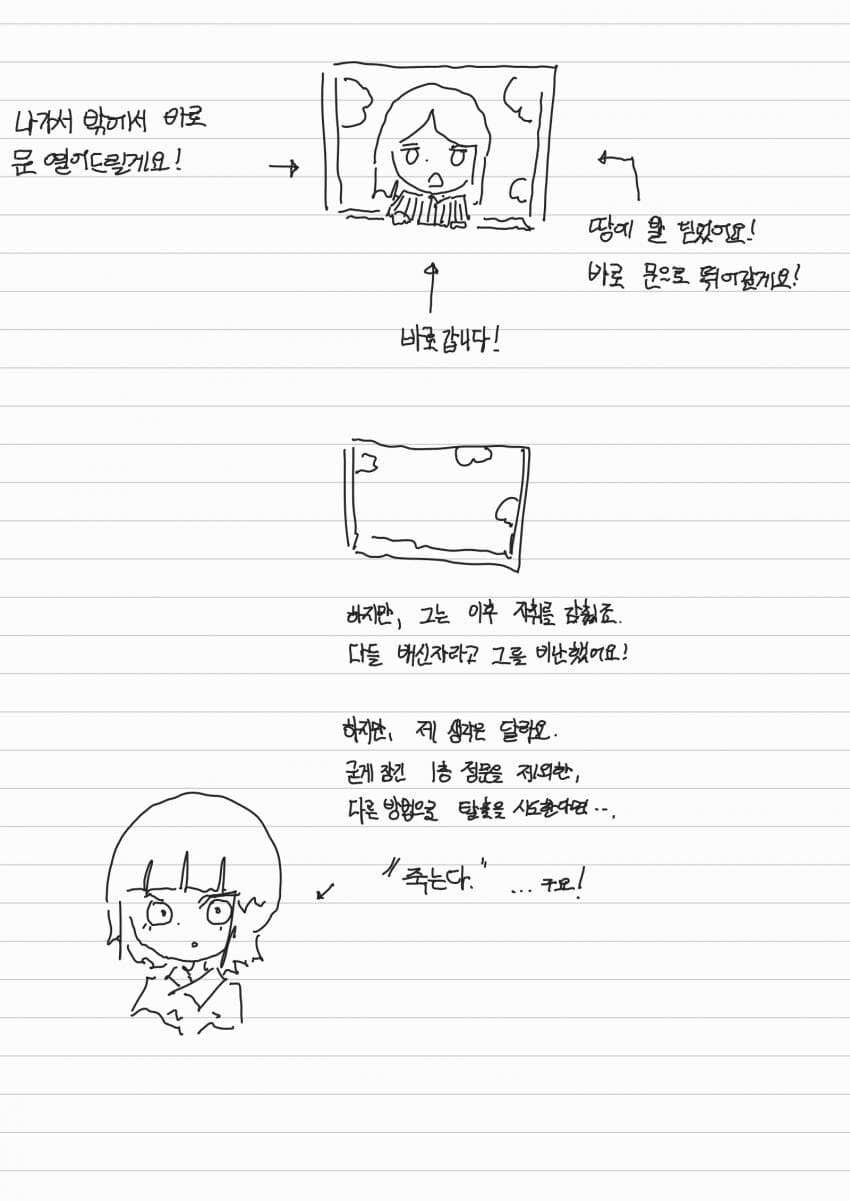 나가서 밖에서 바로
문 열어드릴게요!
땅에 발 닫았어요!
바로 문으로 뛰어갈게요!
바로 갑니다!
하지만, 그는 이후 자취를 감췄죠.
다들 배신자라고 그를 비난했어요!
하지만, 제 생각은 달라요.
굳게 잠긴 1층 정문을 제외한,
다른 방법으로 탈출을 시도한다면...
"죽는다." ...구요!